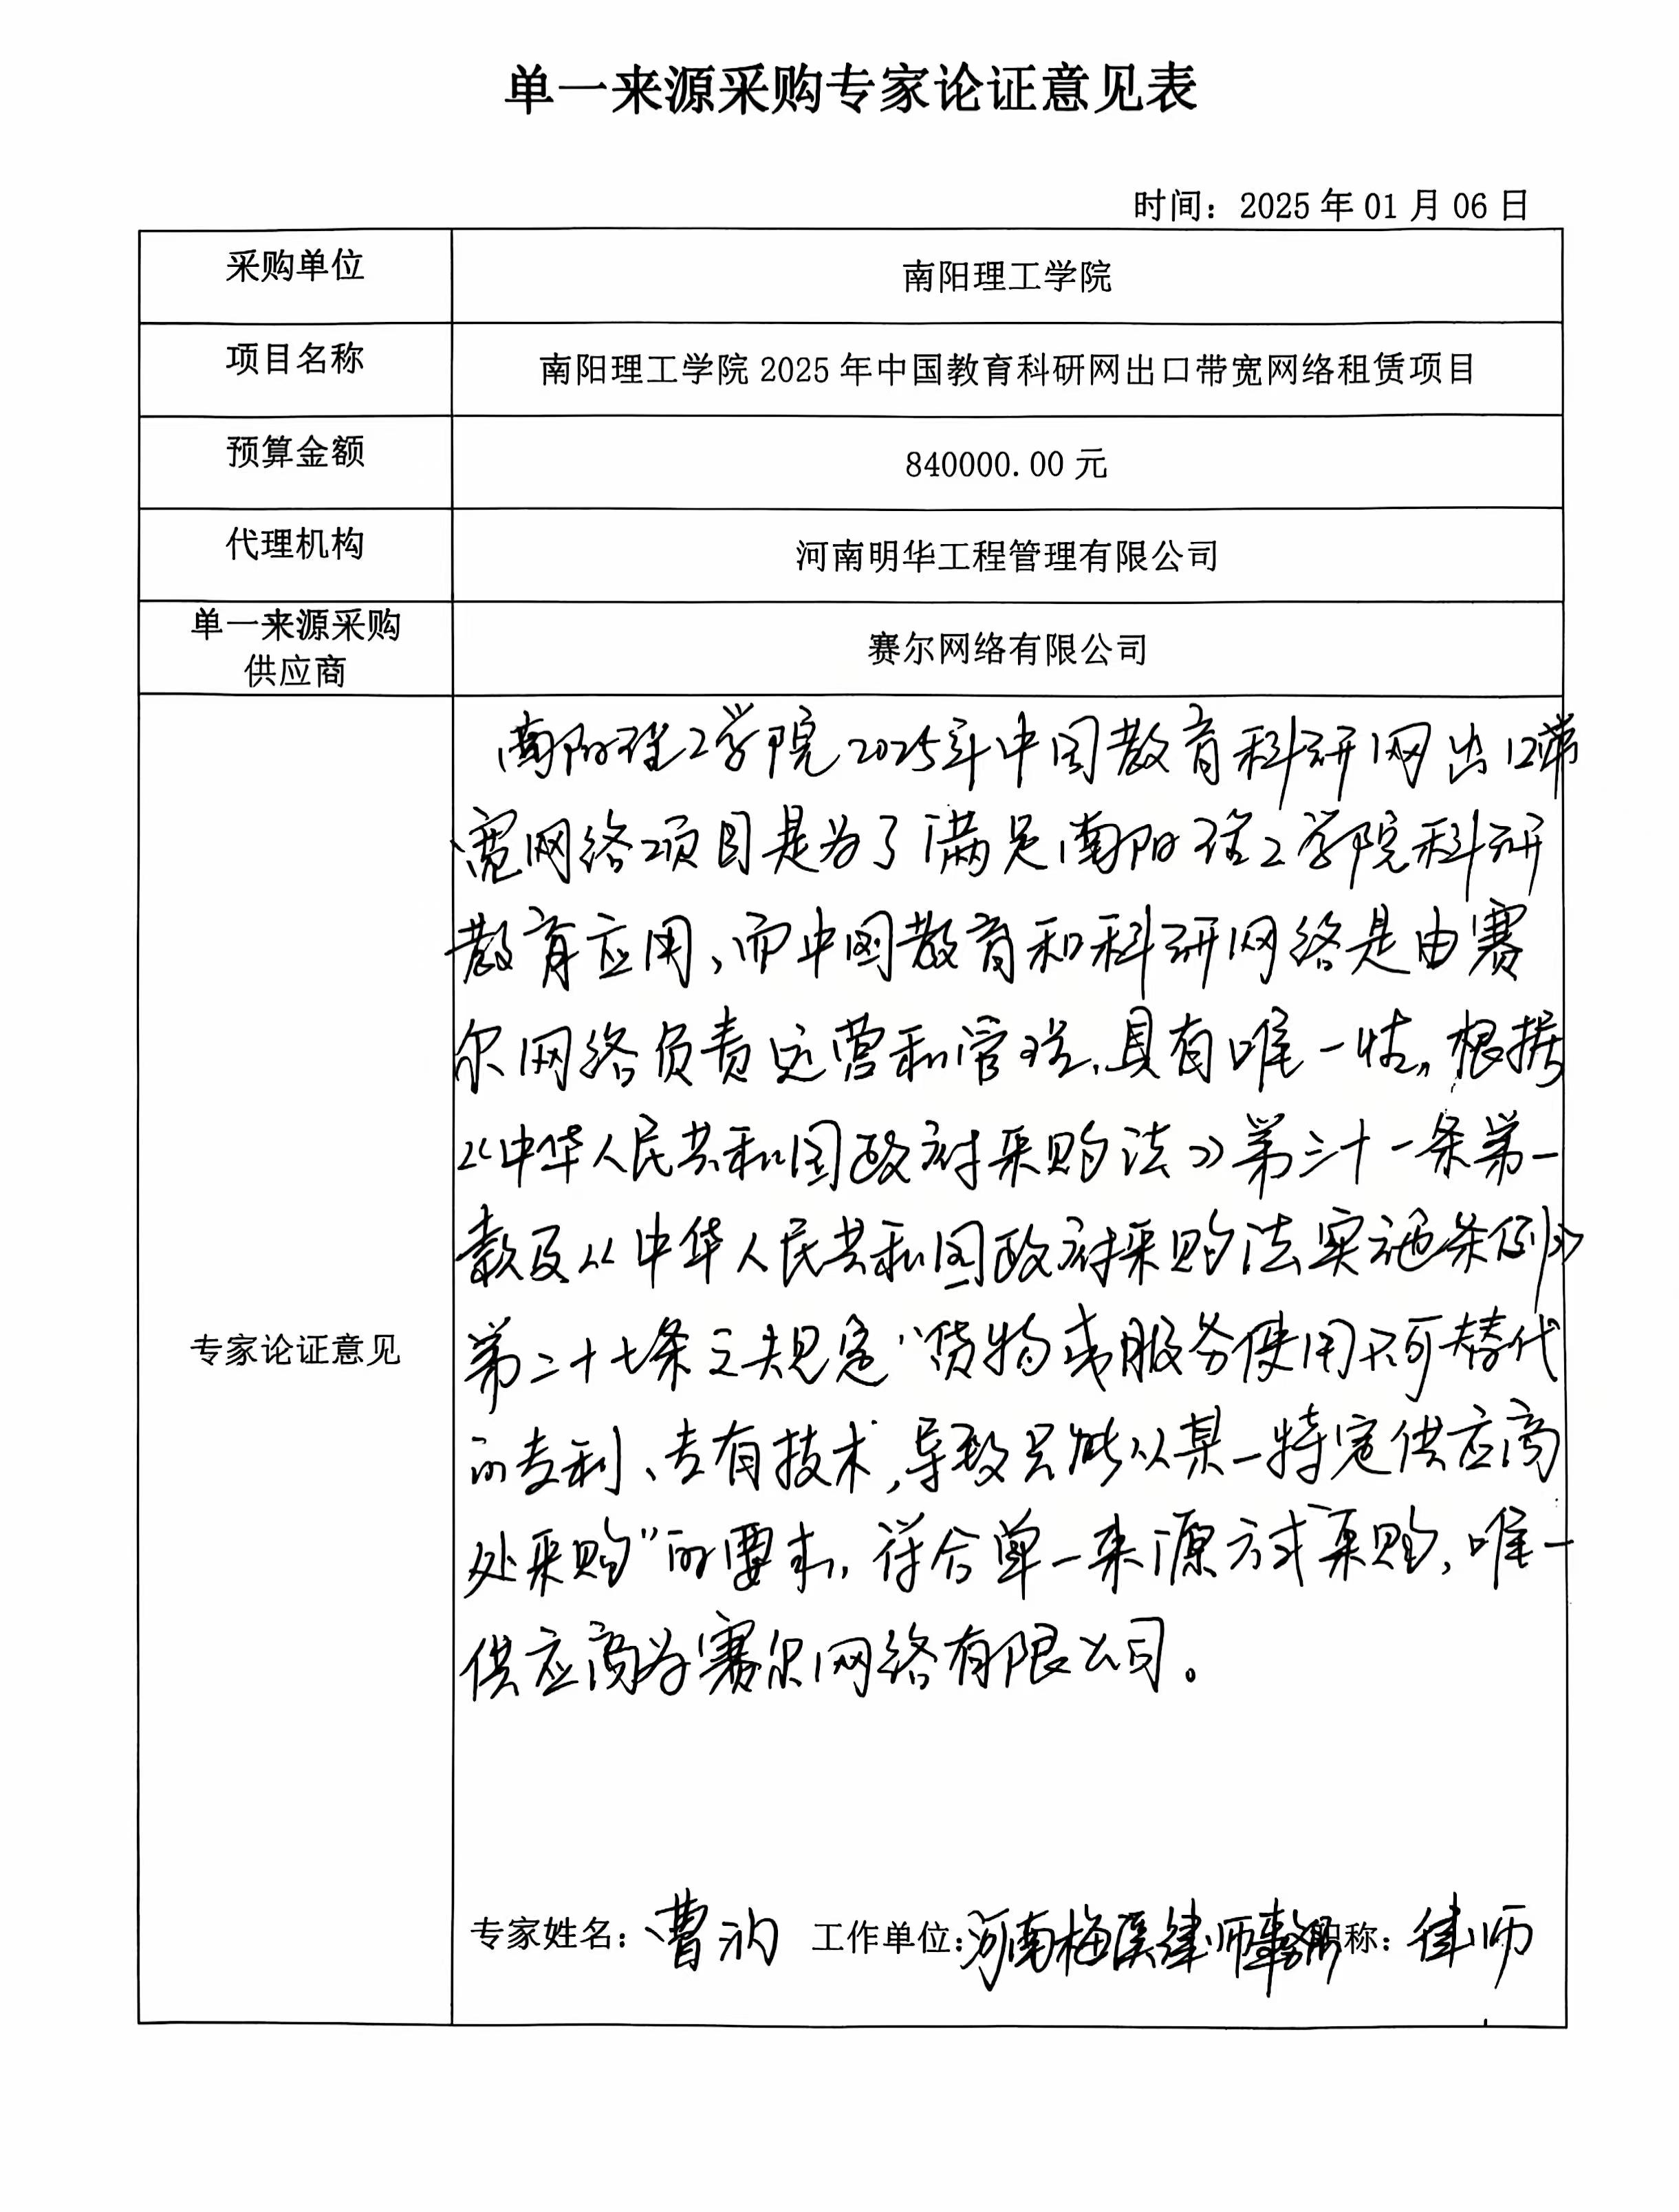 单一来源采购专家论证意见表
时间：2025年01月06日
采购单位
南阳理工学院
项目名称
南阳理工学院2025年中国教育科研网出口带宽网络租赁项目
预算金额
840000.00元
代理机构
河南明华工程管理有限公司
单一来源采购
供应商
赛尔网络有限公司
专家论证意见
南阳理工学院2025年中国教育科研网出口带
宽网络项目是为了满足南阳理工学院科研
教育应用，而中国教育和科研网络是由赛
尔网络负责运营和管理，具有唯一性。根据
《中华人民共和国政府采购法》第三十一条第一
款及《中华人民共和国政府采购法实施条例》
第二十七条之规定“货物或服务使用不可替代
的专利、专有技术，导致只能从某一特定供应商
处采购”的要求，符合单一来源方式采购，唯一
供应商为赛尔网络有限公司。
专家姓名：曹 工作单位：河南梅溪律师事务所 职称：律师